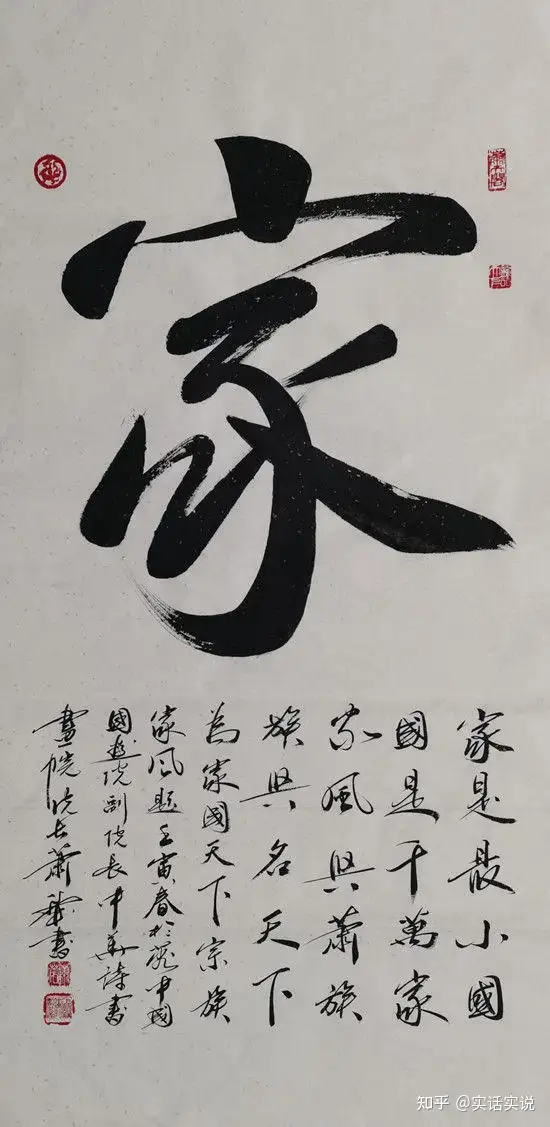 家
家是最小國
國是千萬家
家風興蕭族
族興名天下
為家國天下宗族
家风題壬寅春於中國
國院副院長中華詩書
畫院院長蕭書
知乎 @实话实说